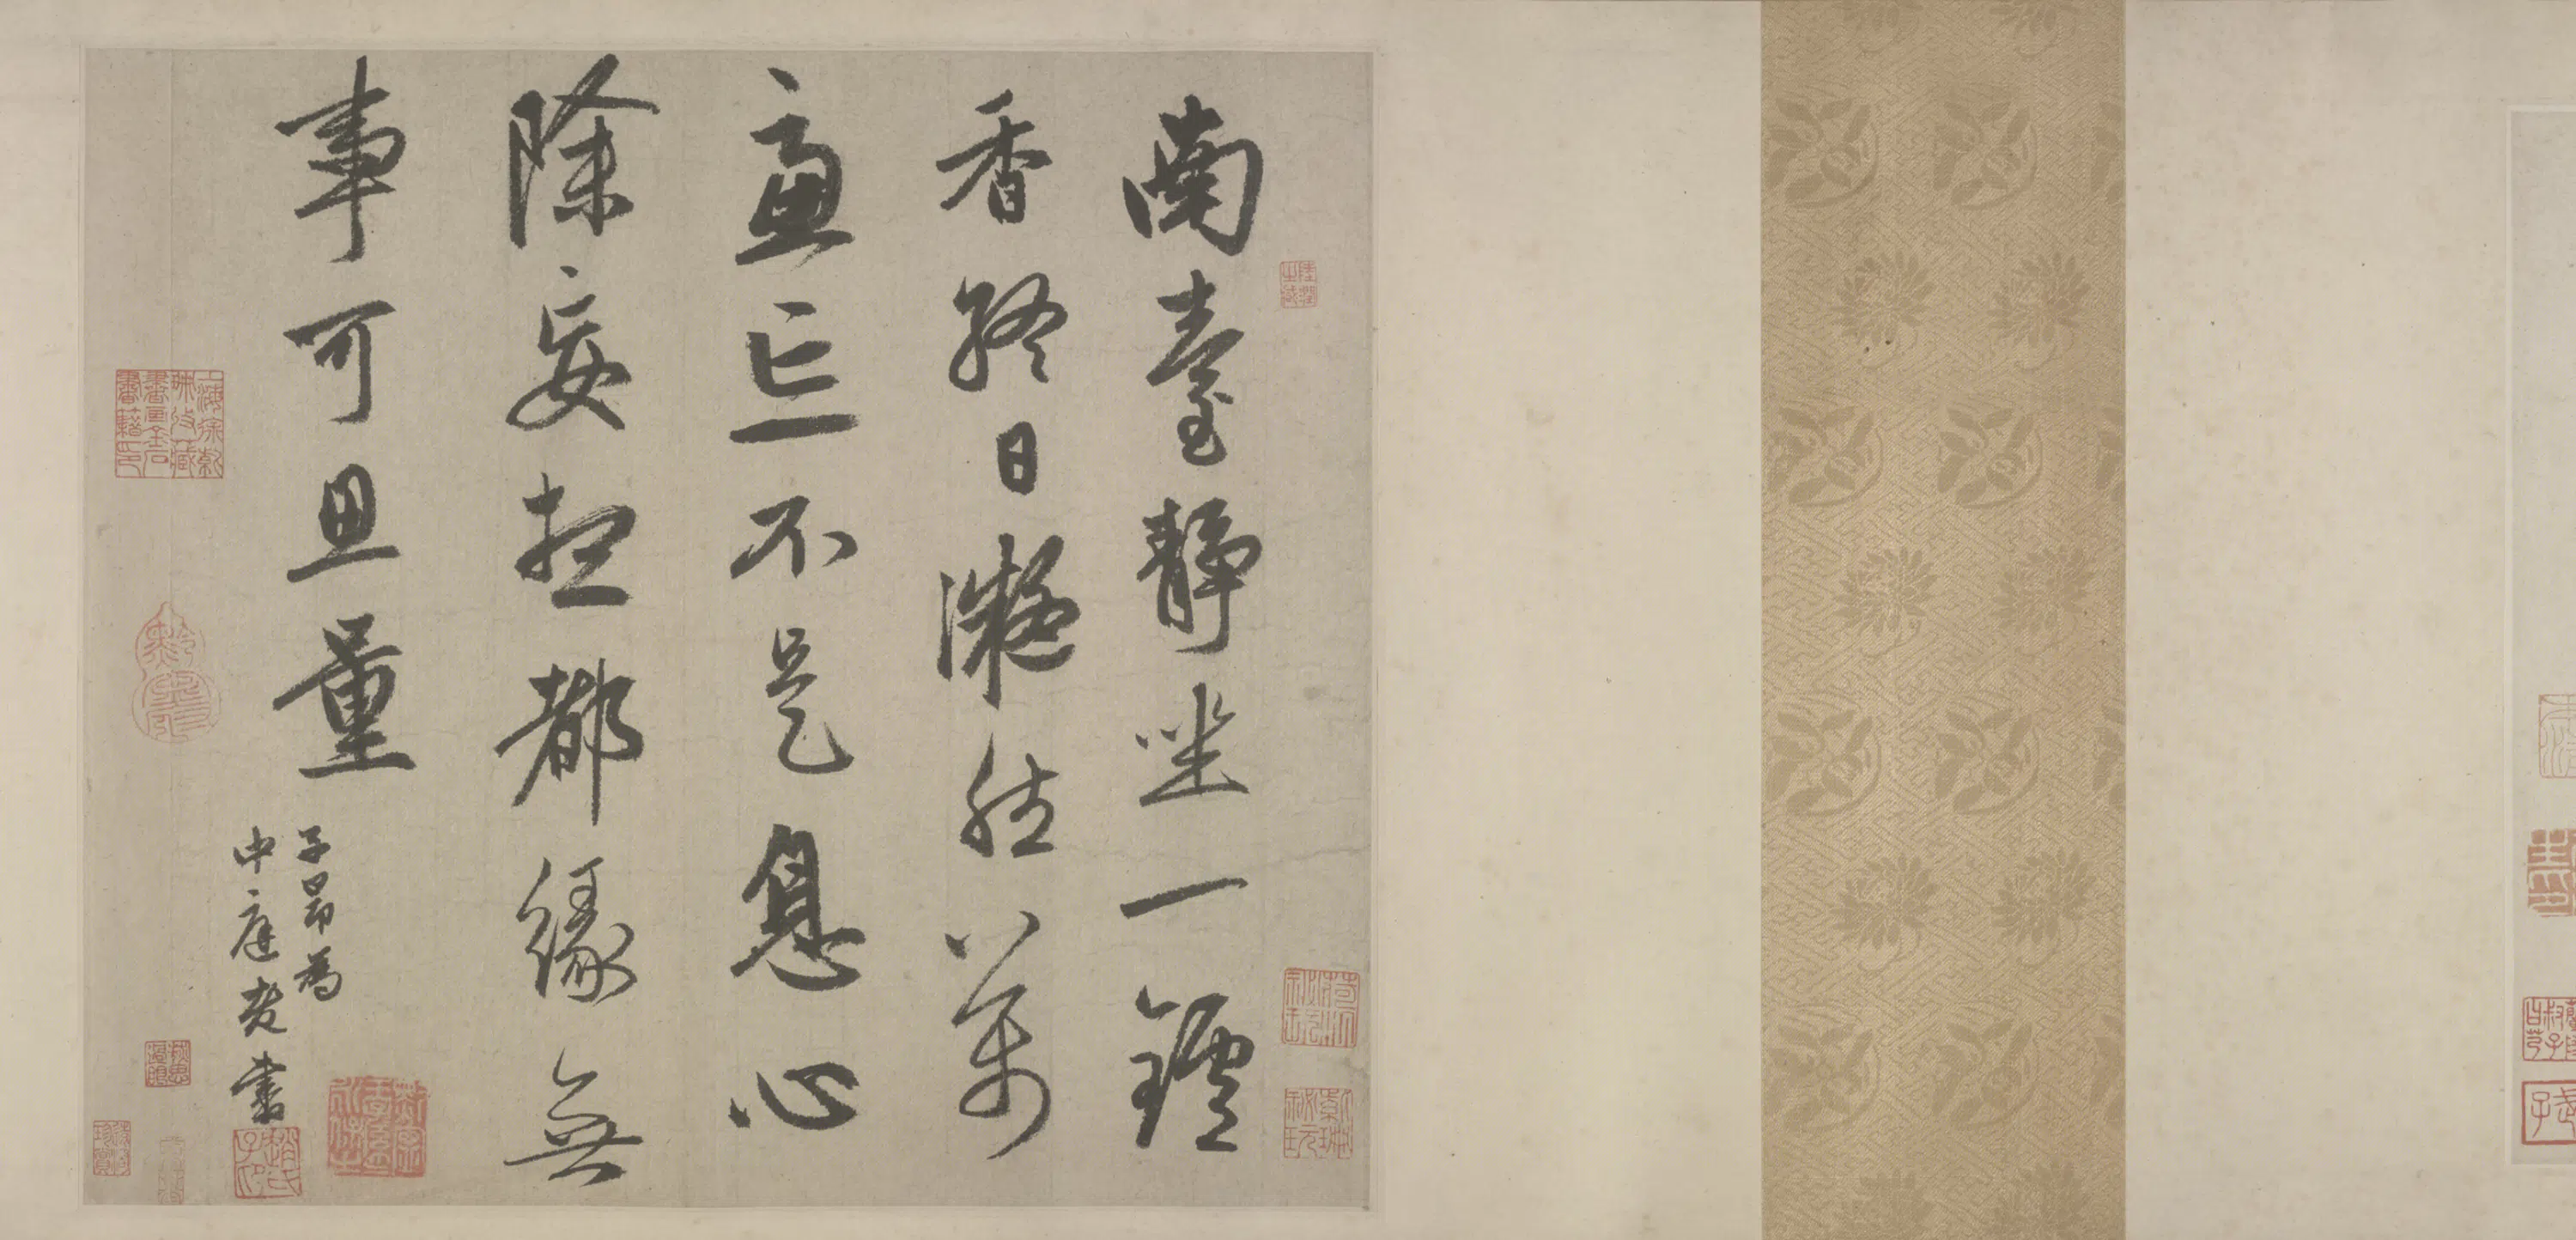 南臺静坐一鑪
香終日凝然萬
慮亡不是息心
除妄想都緣無
事可思量
子昂為
中庭老書
趙氏子昂